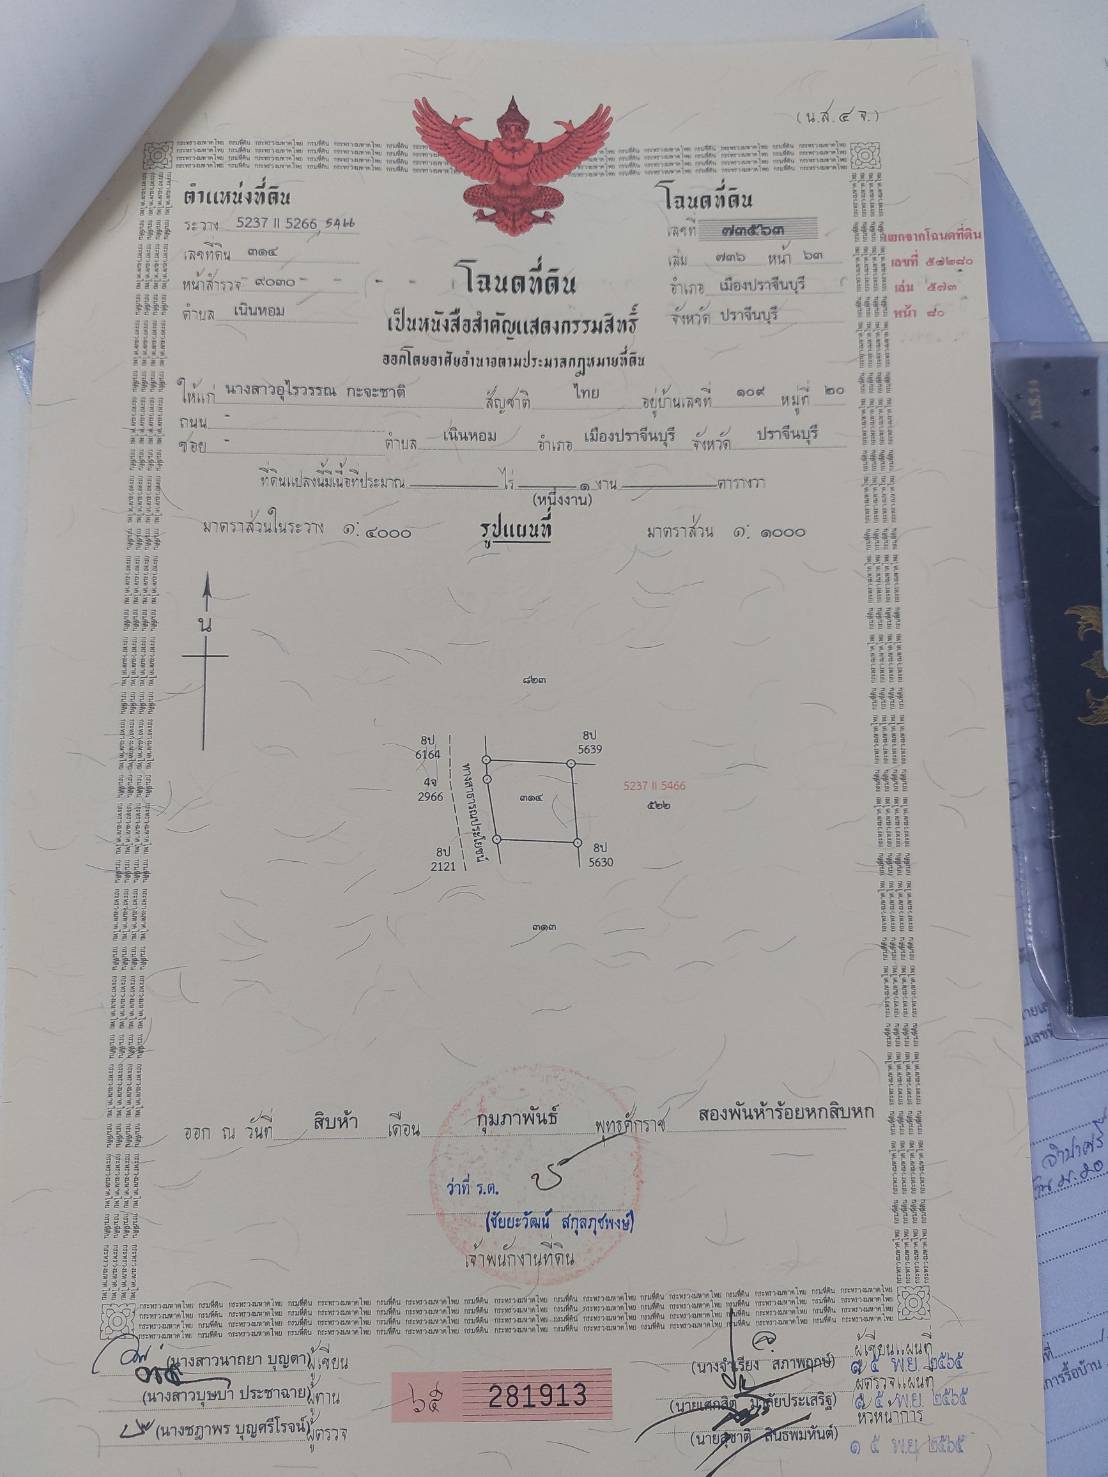 (น.ส.๔ จ.)
ตำแหน่งที่ดิน
ระวาง 5237 II 5266, 5466
เลขที่ดิน ๓๑๔
หน้าสำรวจ ๙๐๓๐
ตำบล เนินหอม
โฉนดที่ดิน
เลขที่ ๗๓๕๖๓
เล่ม ๗๓๖ หน้า ๖๓
อำเภอ เมืองปราจีนบุรี
จังหวัด ปราจีนบุรี
แยกจากโฉนดที่ดิน
เล่ม ๕๗๓
หน้า ๘๐
โฉนดที่ดิน
เป็นหนังสือสำคัญแสดงกรรมสิทธิ์
ออกโดยอาศัยอำนาจตามประมวลกฎหมายที่ดิน
ให้แก่ นางสาวอุไรวรรณ กะจะชาติ สัญชาติ ไทย อยู่บ้านเลขที่ ๑๐๙ หมู่ที่ ๒๐
ถนน -
ซอย - ตำบล เนินหอม อำเภอ เมืองปราจีนบุรี จังหวัด ปราจีนบุรี
ที่ดินแปลงนี้มีเนื้อที่ประมาณ ไร่ ๑ งาน ตารางวา
(หนึ่งงาน)
มาตราส่วนในระวาง ๑: ๔๐๐๐ รูปแผนที่ มาตราส่วน ๑: ๑๐๐๐
น
๘๒๓
8ป
6164
8ป
5639
4จ
2966
ทางสาธารณประโยชน์
๓๑๔
5237 II 5466
๕๒๒
8ป
2121
8ป
5630
๓๑๓
ออก ณ วันที่ สิบห้า เดือน กุมภาพันธ์ พุทธศักราช สองพันห้าร้อยหกสิบหก
ว่าที่ ร.ต.
(ชัยยะวัฒน์ สกุลภุชพงษ์)
เจ้าพนักงานที่ดิน
(นางสาวนาถยา บุญตา) ผู้เขียน
(นางสาวบุษบา ประชาฉาย) ผู้ทาน
(นางชฎาพร บุญศรีโรจน์) ผู้ตรวจ
๖๕ 281913
ผู้เขียนแผนที่
(นางจำเรียง สภาพฤกษ์) ๑๕ พ.ย. ๒๕๖๕
ผู้ตรวจแผนที่
(นายเศกสิต มาลัยประเสริฐ) ๑๕ พ.ย. ๒๕๖๕
หัวหน้าการ
(นายสุชาติ สินธพมหันต์)
๑๕ พ.ย. ๒๕๖๕